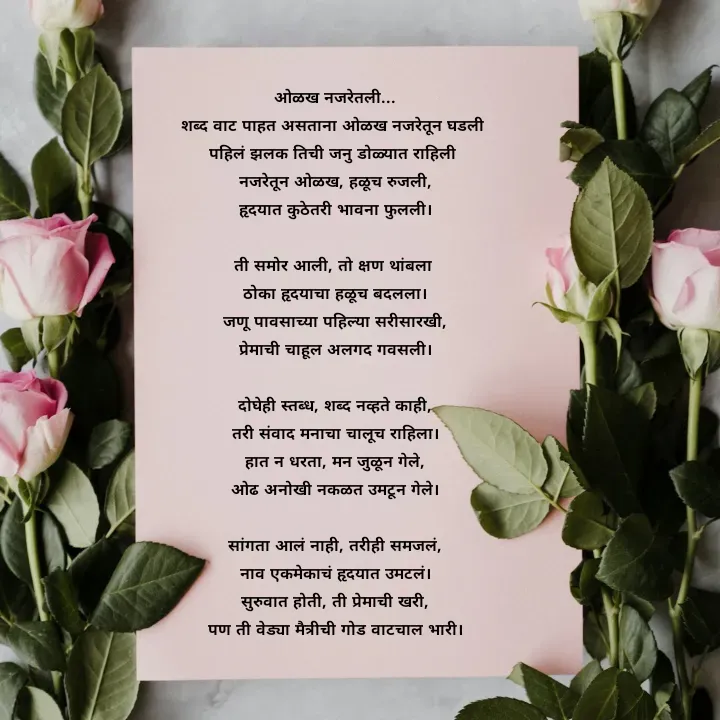 ओळख नजरेतली...
शब्द वाट पाहत असताना ओळख नजरेतून घडली
पहिलं झलक तिची जनु डोळ्यात राहिली
नजरेतून ओळख, हळूच रुजली,
हृदयात कुठेतरी भावना फुलली।
ती समोर आली, तो क्षण थांबला
ठोका हृदयाचा हळूच बदलला।
जणू पावसाच्या पहिल्या सरीसारखी,
प्रेमाची चाहूल अलगद गवसली।
दोघेही स्तब्ध, शब्द नव्हते काही,
तरी संवाद मनाचा चालूच राहिला।
हात न धरता, मन जुळून गेले,
ओढ अनोखी नकळत उमटून गेले।
सांगता आलं नाही, तरीही समजलं,
नाव एकमेकाचं हृदयात उमटलं।
सुरुवात होती, ती प्रेमाची खरी,
पण ती वेड्या मैत्रीची गोड वाटचाल भारी।